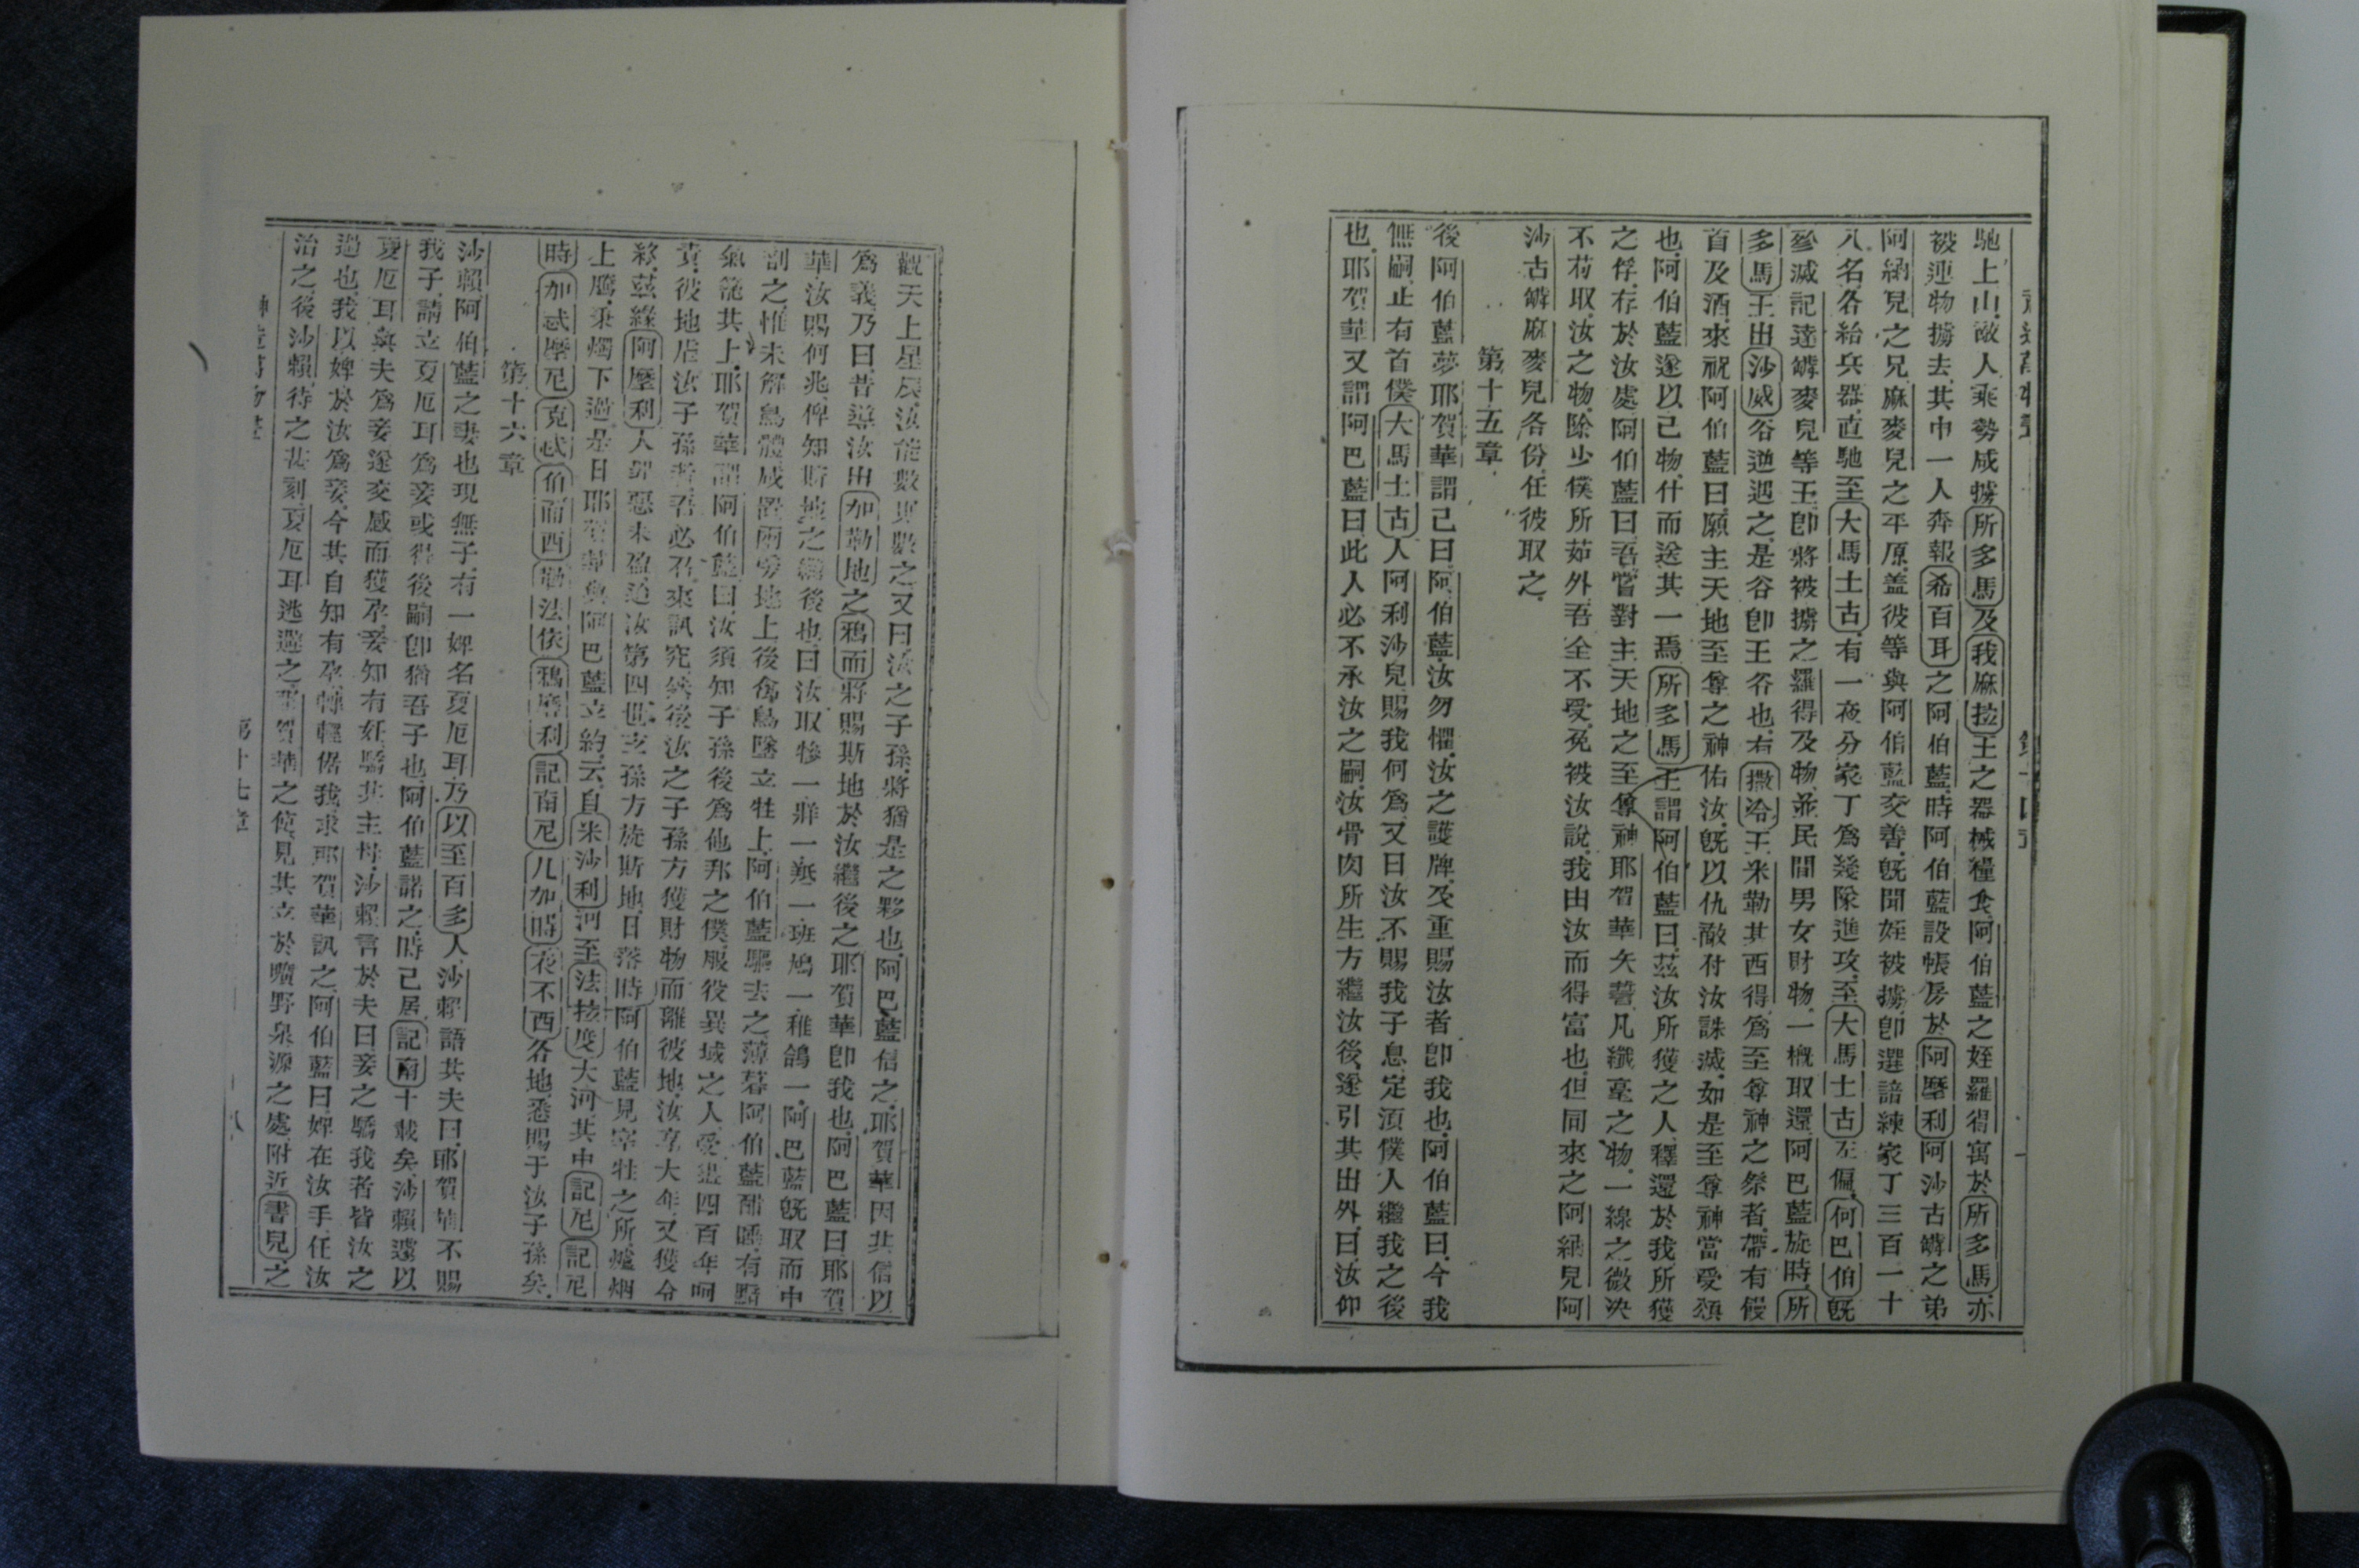 馳上山、敵人乘勢咸擄所多馬及我麻拉王之器械糧食、阿伯藍之姪羅得寓於所多馬、亦
被連物擄去、其中一人奔報希百耳之阿伯藍、時阿伯藍設帳房於阿壓利阿沙古罅之弟
阿納兒之兄麻麥兒之平原、蓋彼等與阿伯藍交善、旣聞姪被擄、卽選諳練家丁三百一十
八名、各給兵器、直馳至大馬士古、有一夜分家丁爲幾隊進攻、至大馬士古左偏、何巴伯旣
殄滅記達罅麥兒等王、卽將被擄之羅得及物、並民間男女財物、一概取還、阿巴藍旋時、所
多馬王出沙威谷迎遇之、是谷卽王谷也、有撒冾王米勒其西得、爲至尊神之祭者、帶有饅
首及酒、來祝阿伯藍曰、願主天地至尊之神佑汝、旣以仇敵付汝誅滅、如是至尊神當受頌
也、阿伯藍遂以己物、什而送其一焉、所多馬王謂阿伯藍曰、茲汝所獲之人、釋還於我、所獲
之俘、存於汝處、阿伯藍曰、吾嘗對主天地之至尊神耶賀華矢誓、凡纖毫之物、一線之微、决
不苟取、汝之物、除少僕所茹外、吾全不受、免被汝說、我由汝而得富也、但同來之阿納兒阿
沙古罅麻麥兒各份、任彼取之、
第十五章
後阿伯藍夢耶賀華謂己曰、阿伯藍、汝勿懼、汝之護牌、及重賜汝者卽我也、阿伯藍曰、今我
無嗣、止有首僕大馬士古人阿利沙兒、賜我何爲、又曰汝不賜我子息、定須僕人繼我之後
也、耶賀華又謂阿巴藍曰、此人必不承汝之嗣、汝骨肉所生方繼汝後、遂引其出外、曰、汝仰
觀天上星辰、汝能數則數之、又曰汝之子孫、將猶是之夥也、阿巴藍信之、耶賀華因其信以
爲義、乃曰、昔導汝出加勒地之鴉而、將賜斯地於汝繼後之耶賀華卽我也、阿巴藍曰、耶賀
華、汝賜何兆、俾知斯地之繼後也、曰、汝取犙一、牂一、羝一、班鳩一、稚鴿一、阿巴藍旣取而中
剖之、惟未解鳥體、咸置兩旁地上、後禽鳥墜立牲上、阿伯藍驅去之、薄暮、阿伯藍酣睡、有黯
氣籠其上、耶賀華謂阿伯藍曰、汝須知子孫後爲他邦之僕、服役異域之人、受禁四百年、呵
責、彼地虐汝子孫者、吾必召來訊究、然後汝之子孫方獲財物而離彼地、汝享大年又獲令
終、茲緣阿壓利人、罪惡未盈、迨汝第四世之孫方旋斯地、日落時阿伯藍見宰牲之所、爐烟
上騰、秉燭下過、是日耶賀華與阿巴藍立約、云、自米沙利河至法拉度大河、其中記尼記尼
時加忒壓尼克忒伯而西勒法依鴉壓利記南尼几加時衣不西各地、悉賜于汝子孫矣、
第十六章
沙賴、阿伯藍之妻也、現無子、有一婢名夏厄耳、乃以至百多人、沙賴語其夫曰、耶賀華不賜
我子、請立夏厄耳爲妾、或得後嗣卽猶吾子也、阿伯藍諾之、時己居記南十載矣、沙賴遽以
夏厄耳與夫爲妾、遂交感而獲孕、妾知有妊、驕其主母、沙賴言於夫曰、妾之驕我者皆汝之
過也、我以婢於汝爲妾、今其自知有孕、轉輕倨我、求耶賀華訊之、阿伯藍曰、婢在汝手、任汝
治之、後沙賴待之甚刻、夏厄耳逃避之、耶賀華之使見其立於曠野泉源之處、附近書兒之
第十七章
八